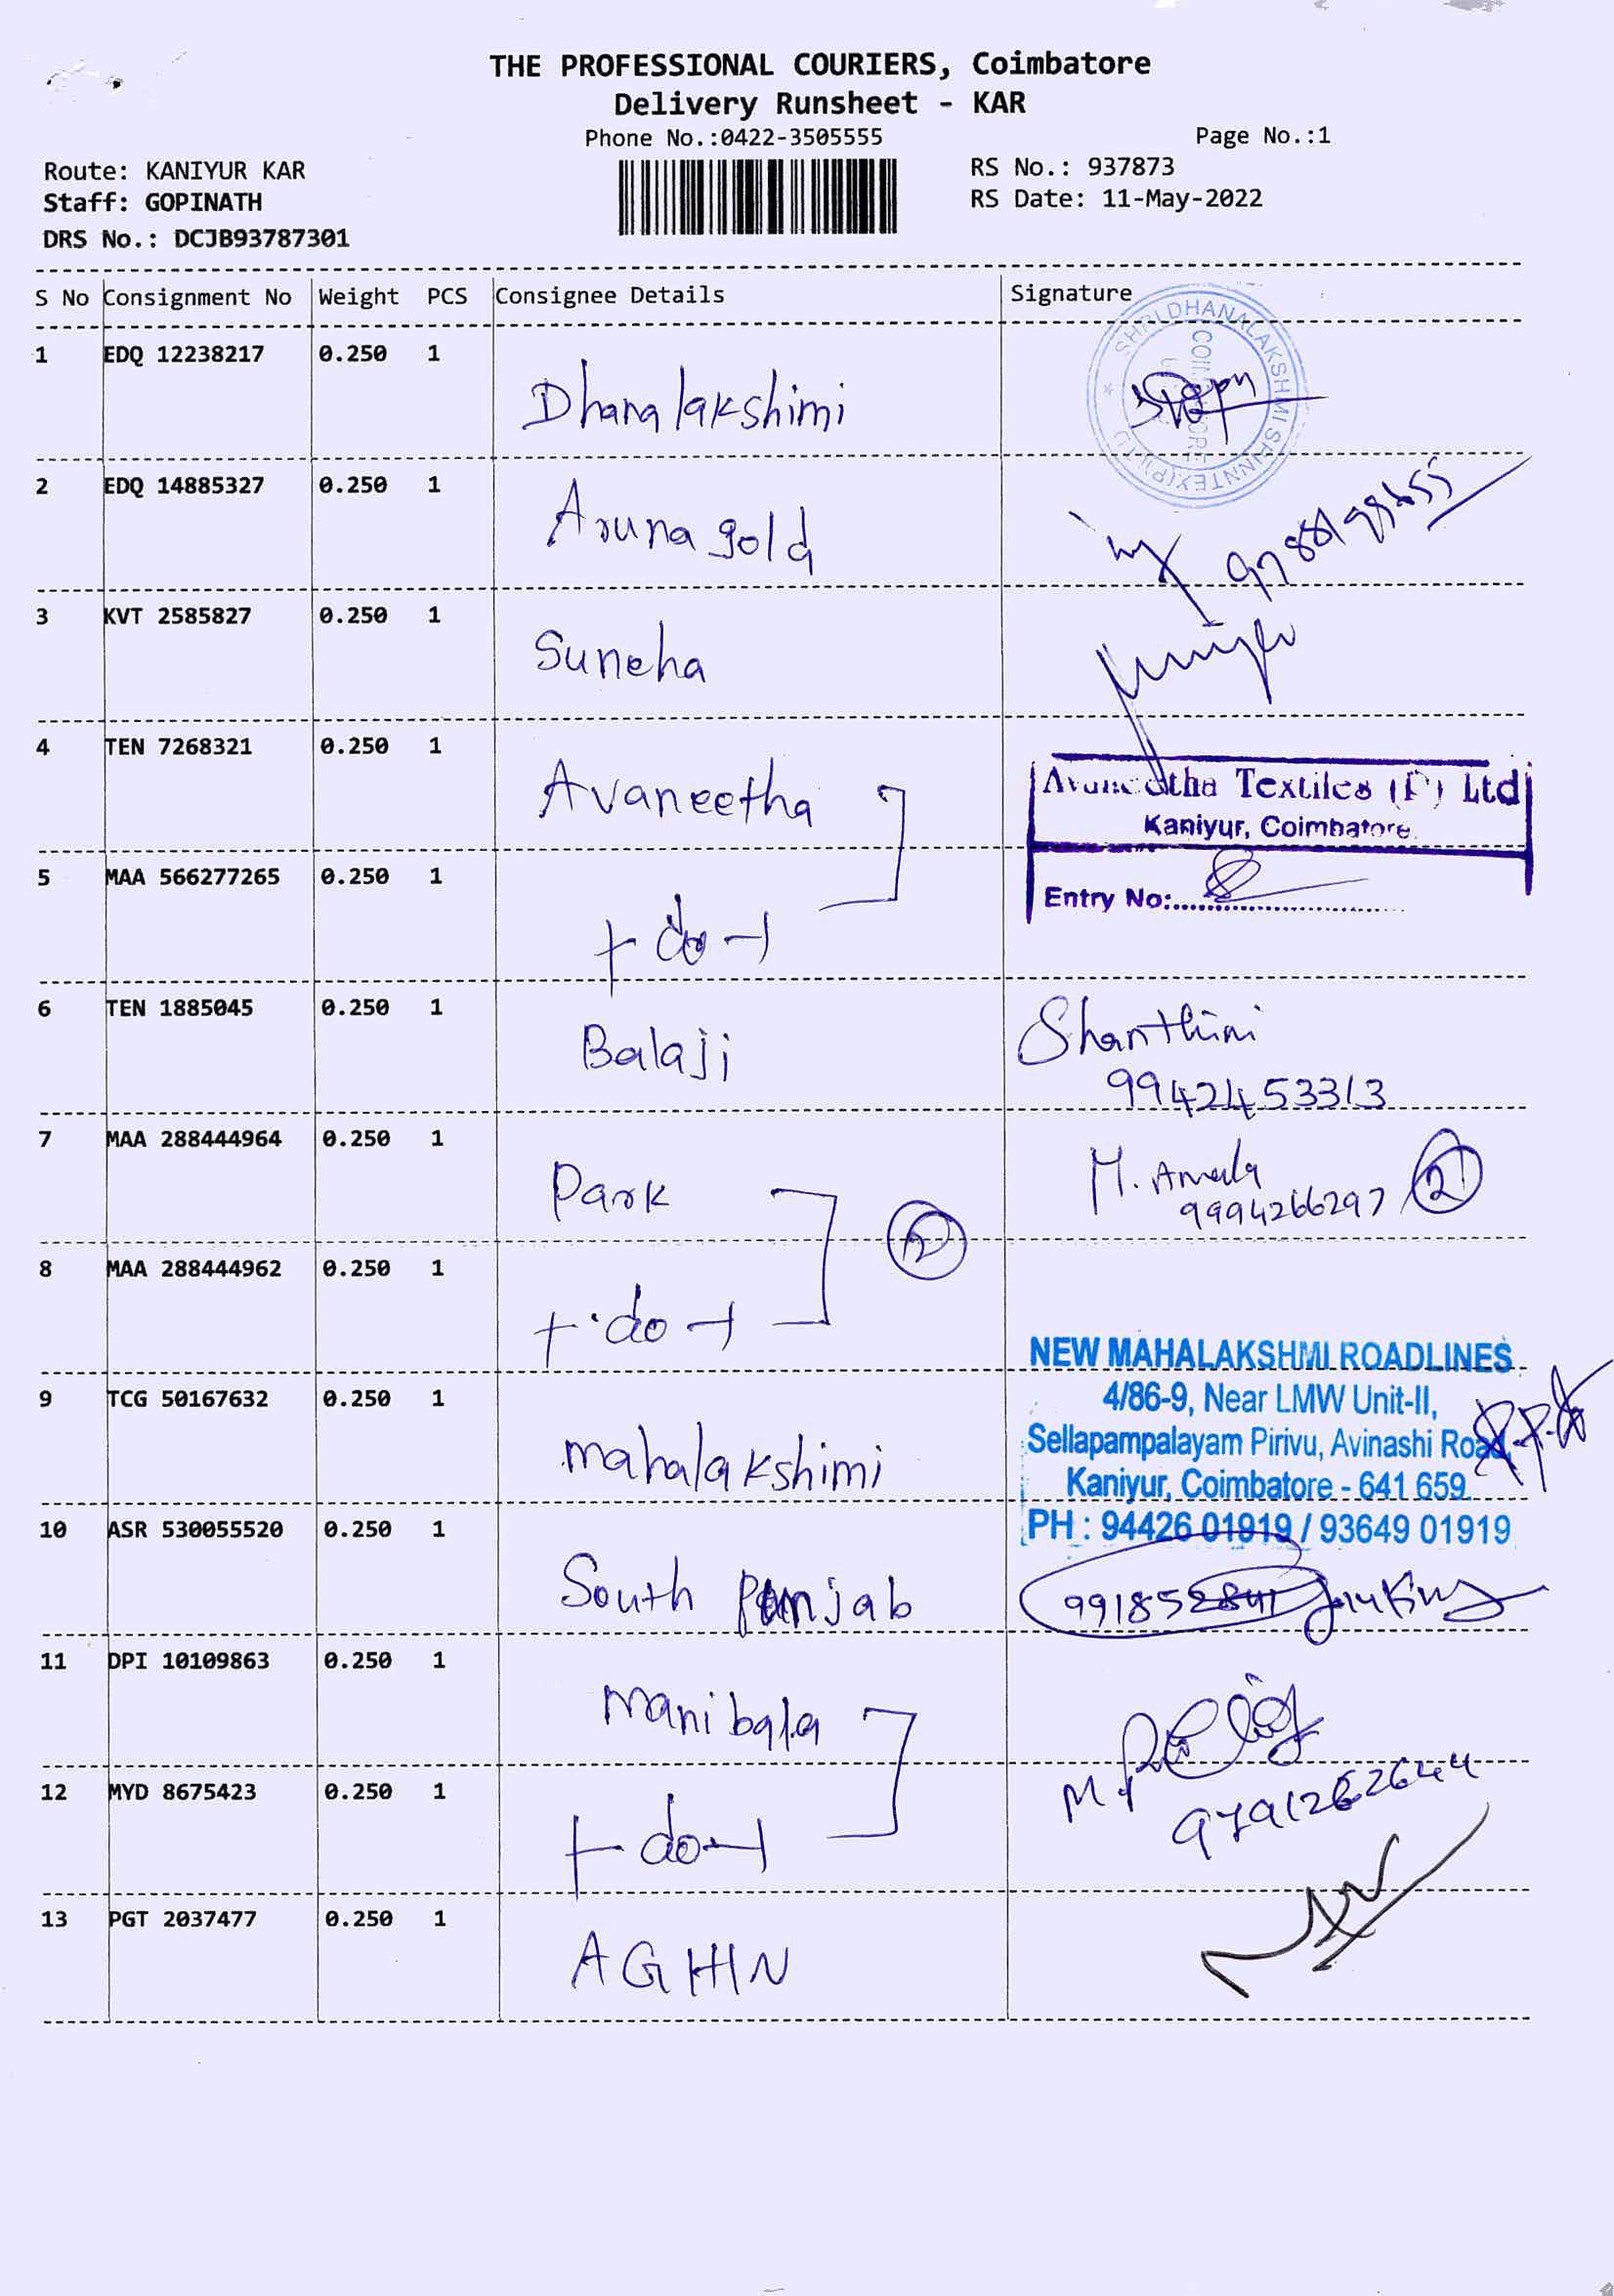 THE PROFESSIONAL COURIERS, Coimbatore
Delivery Runsheet - KAR
Phone No.:0422-3505555
Page No.:1
Route: KANIYUR KAR
RS No.: 937873
Staff: GOPINATH
RS Date: 11-May-2022
DRS No.: DCJB93787301
S No Consignment No Weight PCS Consignee Details Signature
1 EDQ 12238217 0.250 1 Dhanalakshimi
SHRI DHANALAKSHMI SPINNTEX (P) LTD
2 EDQ 14885327 0.250 1 Aruna gold
3 KVT 2585827 0.250 1 Suneha
4 TEN 7268321 0.250 1 Avaneetha
Avaneetha Textiles (P) Ltd
Kaniyur, Coimbatore.
5 MAA 566277265 0.250 1 do
Entry No:
6 TEN 1885045 0.250 1 Balaji Shanthini
9942453313
7 MAA 288444964 0.250 1 Park M. Amula
9994266297 2
8 MAA 288444962 0.250 1 do 2
NEW MAHALAKSHMI ROADLINES
4/86-9, Near LMW Unit-II,
Sellapampalayam Pirivu, Avinashi Road,
Kaniyur, Coimbatore - 641 659.
PH : 94426 01919 / 93649 01919
9 TCG 50167632 0.250 1 mahalakshimi
10 ASR 530055520 0.250 1 South Panjab
11 DPI 10109863 0.250 1 manibala
12 MYD 8675423 0.250 1 do
13 PGT 2037477 0.250 1 AGHIN